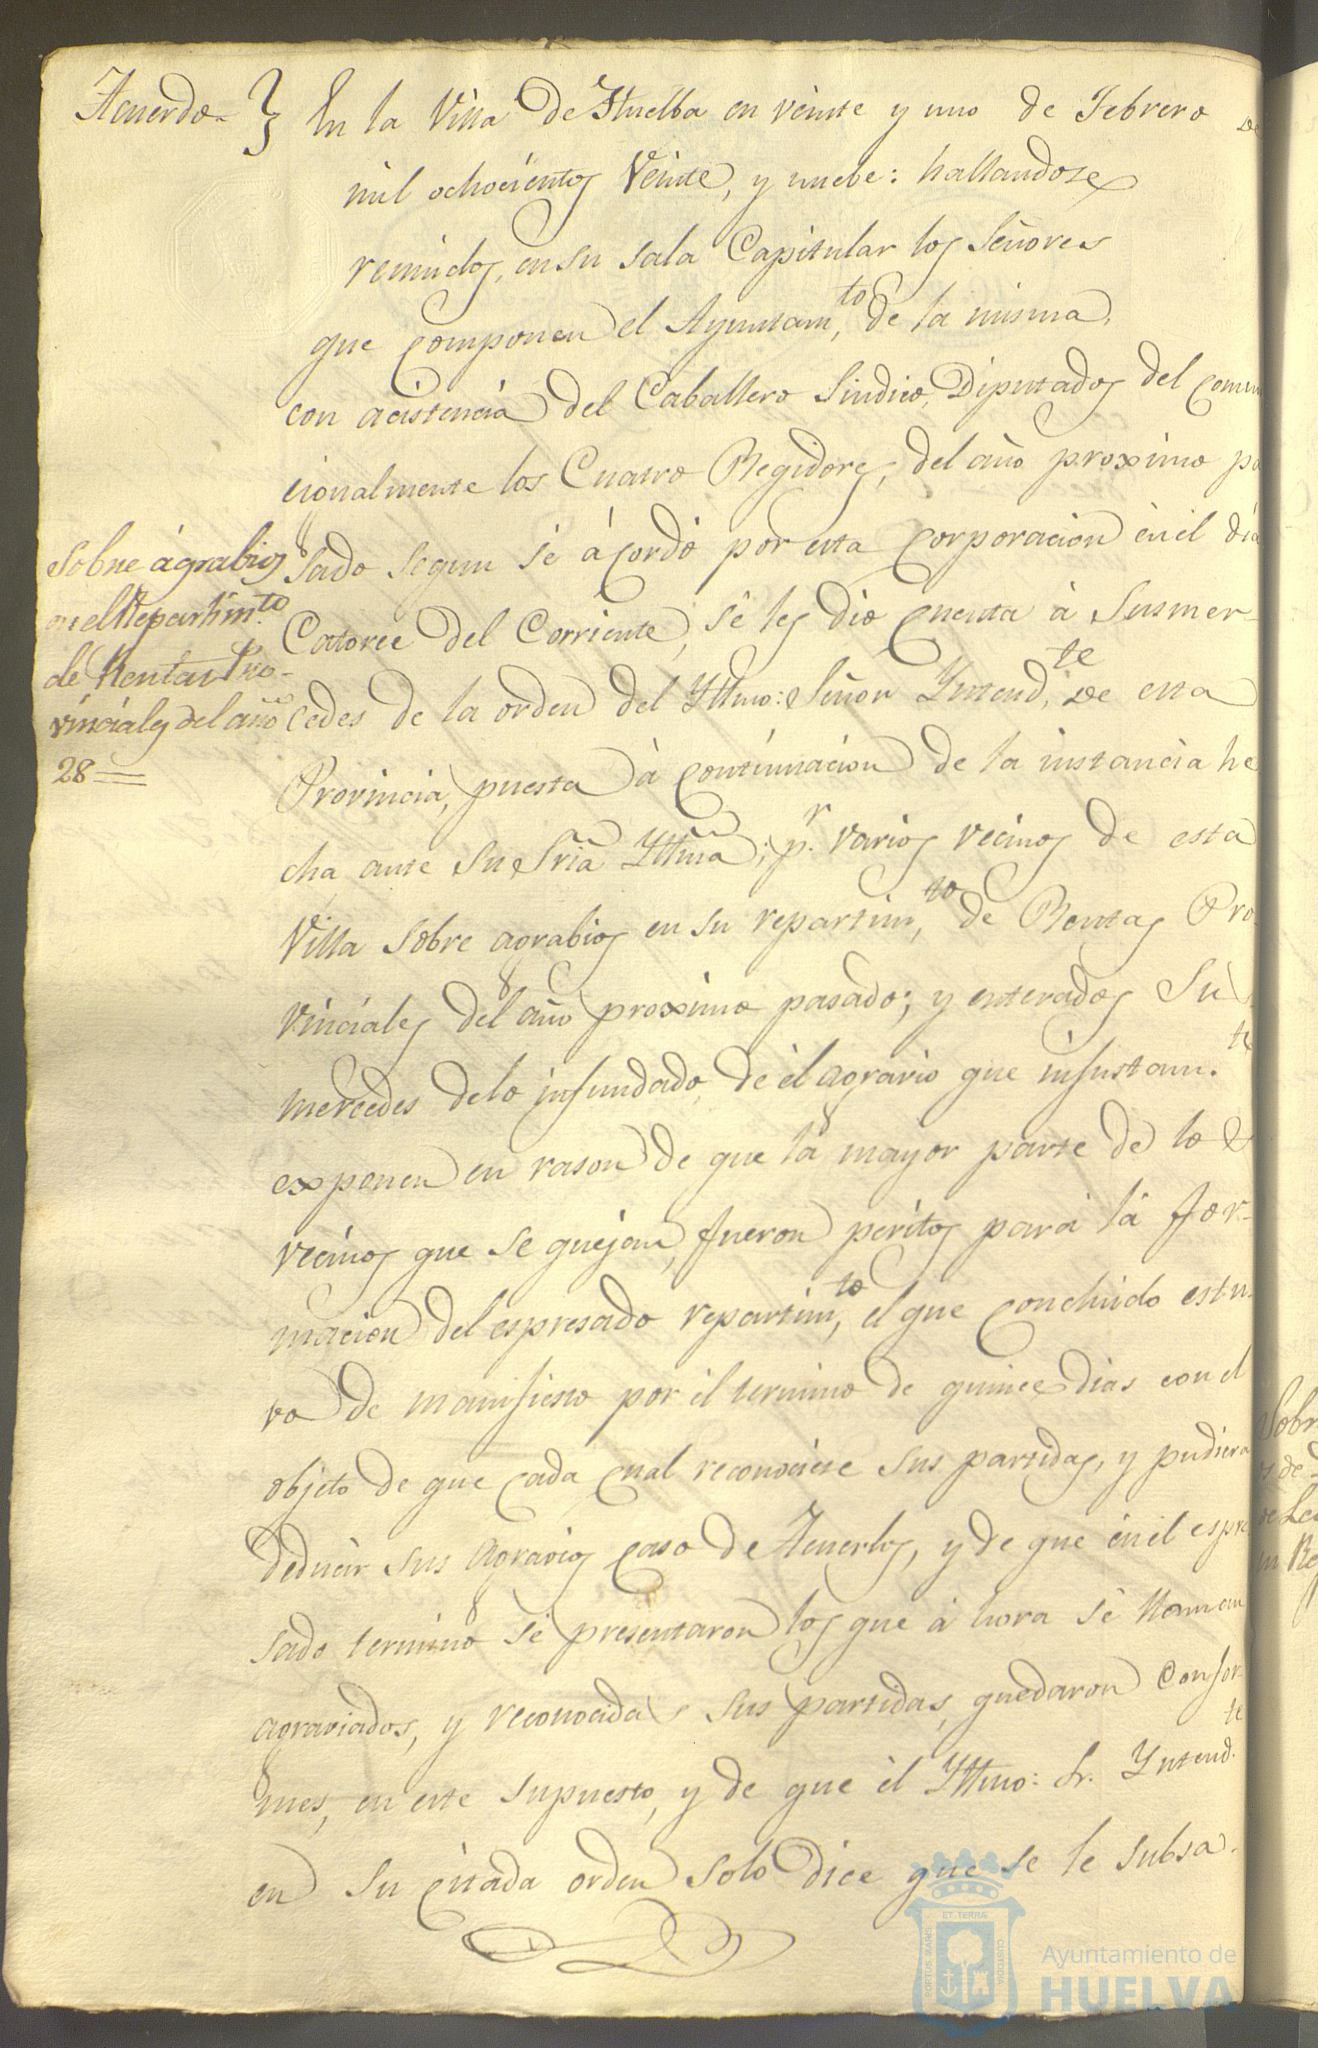 Acuerdo
En la Villa de Huelba en veinte y uno de Febrero de
mil ochocientos veinte, y nuebe: hallandose
reunidos, en su sala Capitular los Señores
que componen el Ayuntam.to de la misma,
con acistencia del Caballero Sindico, Diputados del comun
cionalmente los Cuatro Regidores, del año proximo pa
sado segun se ácordó por esta corporacion en el dia
Catorce del Corriente, se les dio cuenta á Susmer-
cedes de la orden del Yltmo: Señor Yntend.te de esta
Provincia, puesta á continuacion de la instancia he
cha ante Su Sria Yltma; p.r varios vecinos de esta
Villa sobre agrabios en su repartim.to de Rentas Pro-
vinciales del año proximo pasado; y enterados Su
mercedes delo infundado, de el agravio que injustam.te
exponen en rason de que la mayor parte de lo
vecinos que se quejan, fueron peritos para la for-
macion del espresado repartim.to, el que concluido estu-
vo de manifiesto por el termino de quince dias con el
objeto de que cada cual reconociese sus partidas, y pudiera
deducir sus agravios caso de tenerlos, y de que en el espre
sado termino se presentaron los que á hora se llaman
agraviados, y reconocidas sus partidas, quedaron confor-
mes, en este supuesto, y de que el Yltmo: Sr. Yntend.te
en su citada orden solo dice que se le subsa-
Sobre ágrabios
en el Repartim.to
de Rentas Pro-
vinciales del año
28
Sobr
de
in Re
PORTUS MARIS
ET TERRÆ
CUSTODIA
Ayuntamiento de
HUELVA